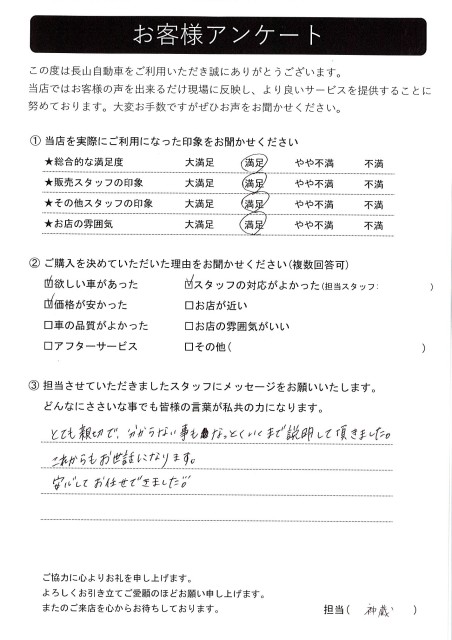 お客様アンケート
この度は長山自動車をご利用いただき誠にありがとうございます。
当店ではお客様の声を出来るだけ現場に反映し、より良いサービスを提供することに
努めております。大変お手数ですがぜひお声をお聞かせください。
① 当店を実際にご利用になった印象をお聞かせください
★総合的な満足度 大満足 満足 やや不満 不満
★販売スタッフの印象 大満足 満足 やや不満 不満
★その他スタッフの印象 大満足 満足 やや不満 不満
★お店の雰囲気 大満足 満足 やや不満 不満
② ご購入を決めていただいた理由をお聞かせください(複数回答可)
☑欲しい車があった ☑スタッフの対応がよかった(担当スタッフ: )
☑価格が安かった □お店が近い
□車の品質がよかった □お店の雰囲気がいい
□アフターサービス □その他( )
③ 担当させていただきましたスタッフにメッセージをお願いいたします。
どんなにささいな事でも皆様の言葉が私共の力になります。
とても親切で、分からない事もなっとくいくまで説明して頂きました。
これからもお世話になります。
安心してお任せできました。
ご協力に心よりお礼を申し上げます。
よろしくお引き立てご愛顧のほどお願い申し上げます。
またのご来店を心からお待ちしております。
担当( 神蔵 )